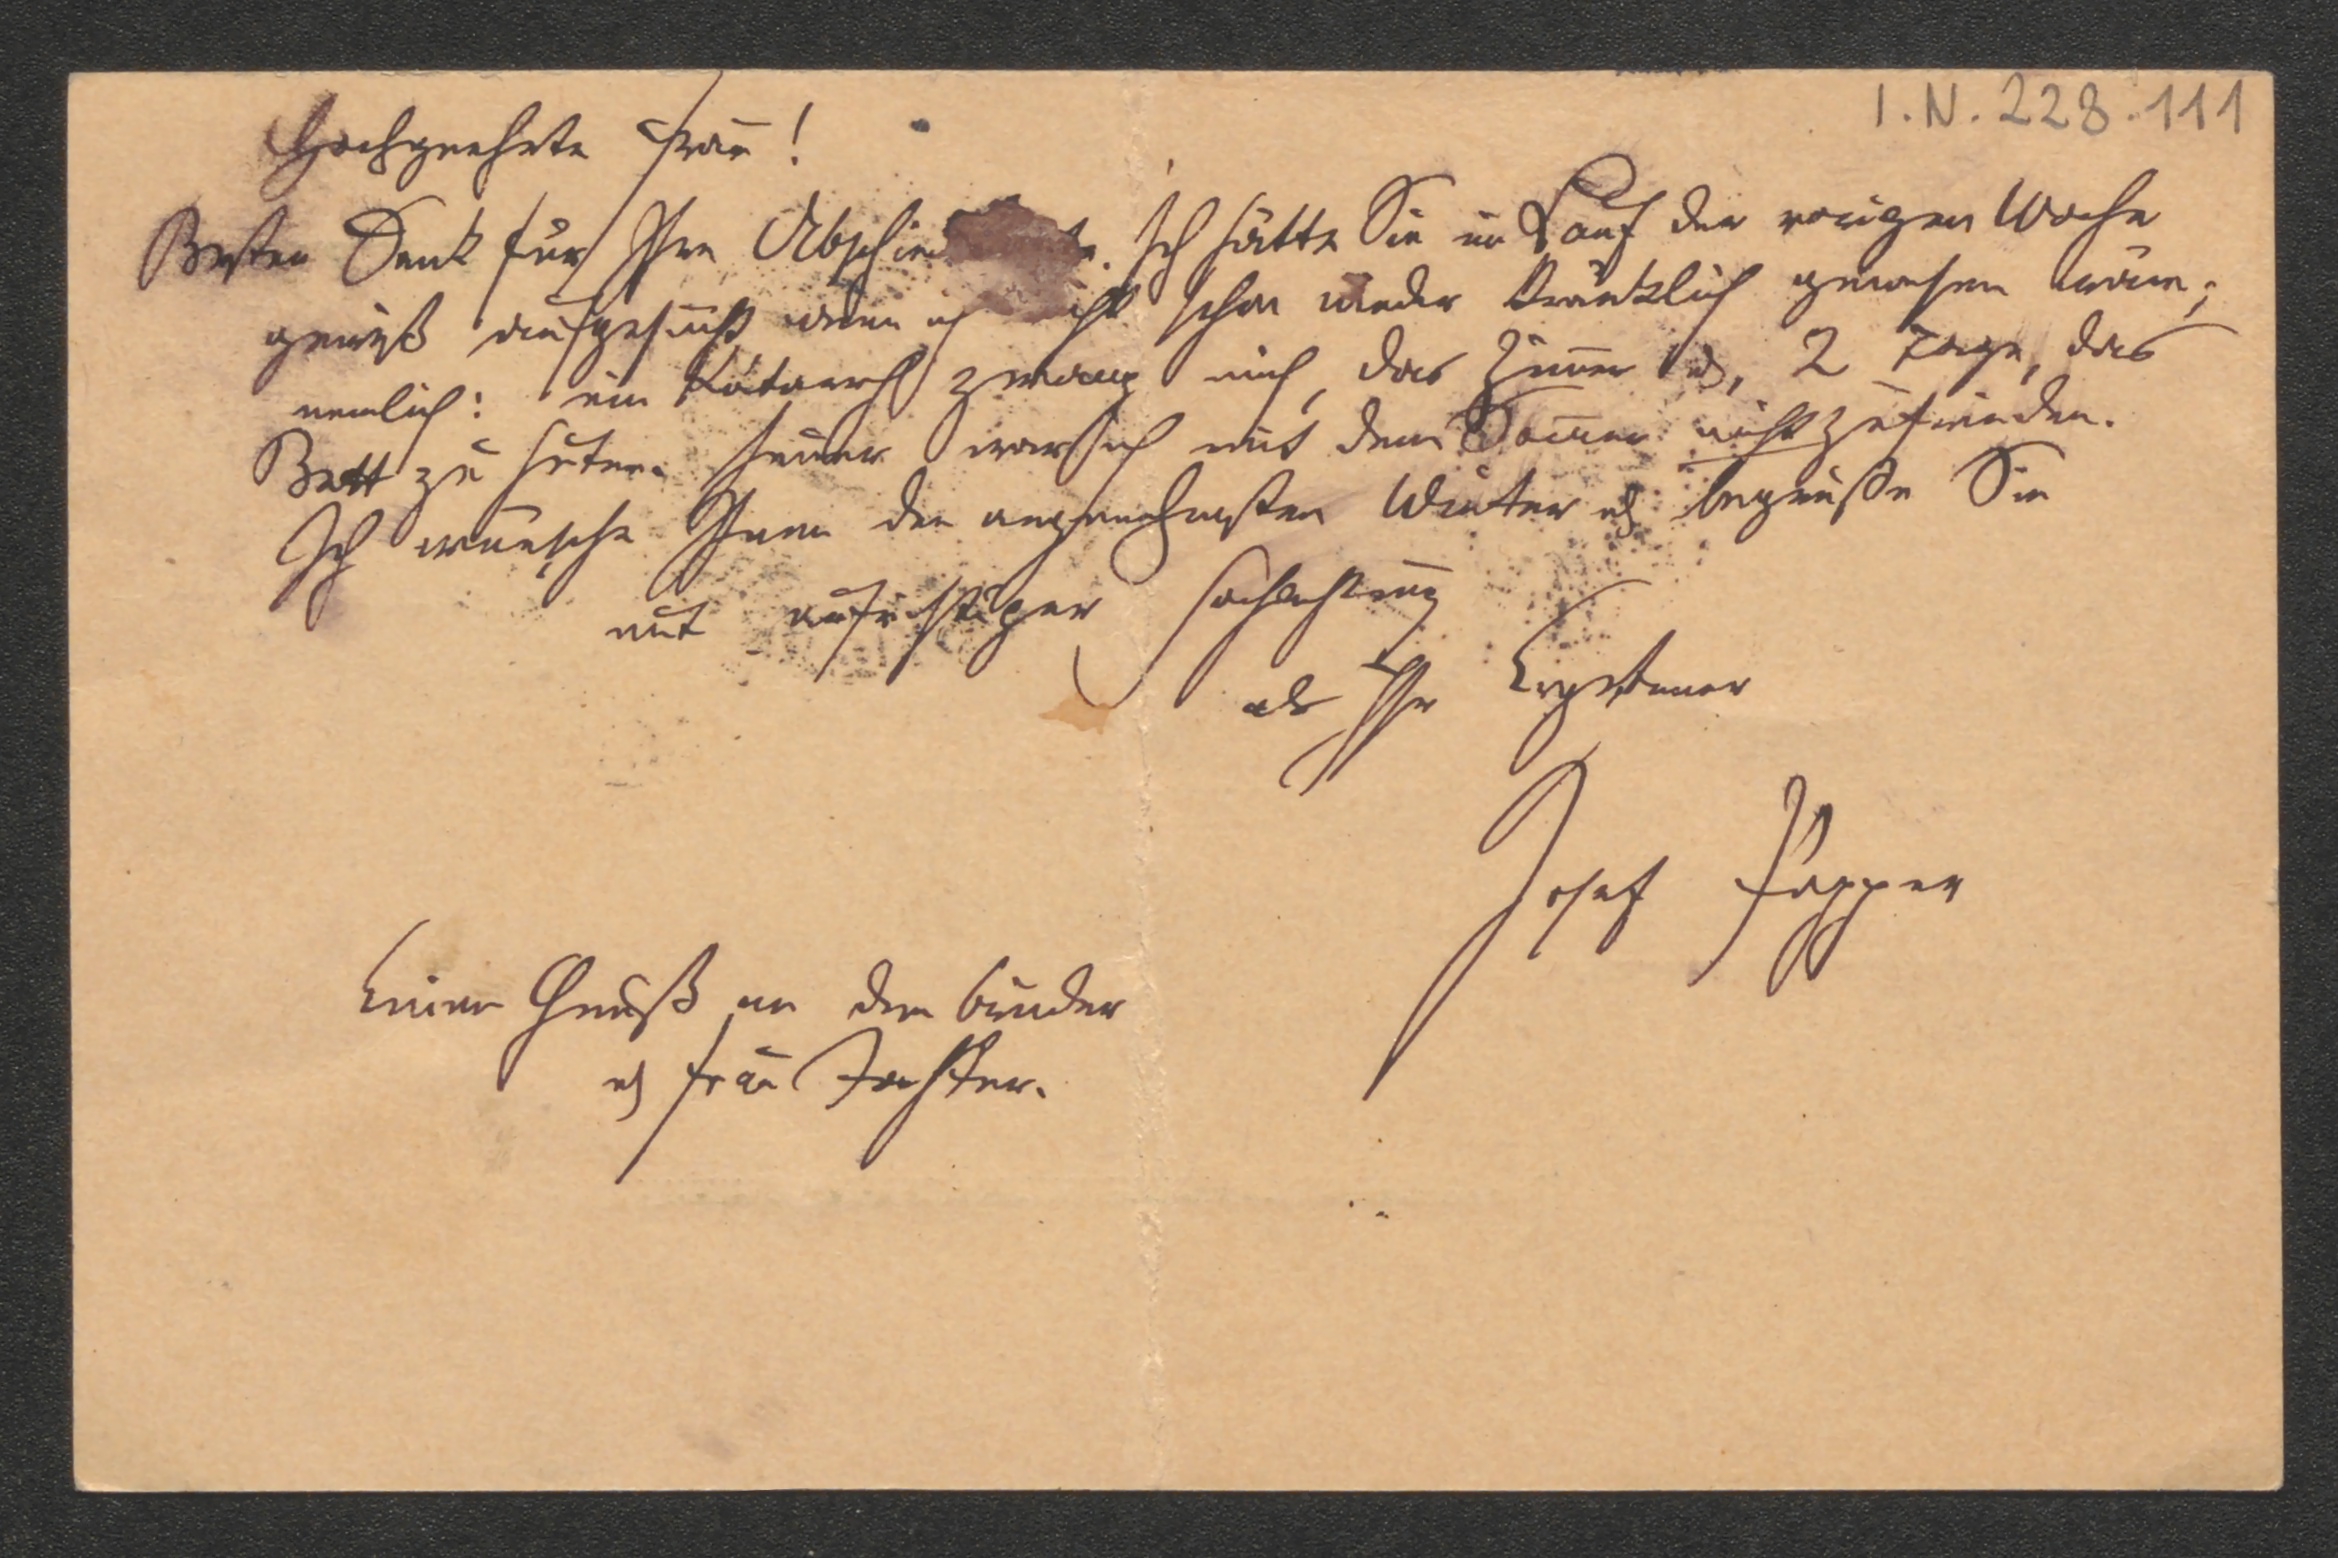 I.N. 228.111
Hochgeehrte Frau!
Besten Dank für Ihre Abschied te. Ich hätte Sie im Lauf der vorigen Woche
gewiß aufgesucht, wenn ich nicht schon wieder kränklich gewesen wäre;
nemlich: ein Katarrh zwang mich, das Zimmer u, 2 Tage, das
Bett zu hüten. Heuer war ich mit dem Sommer nicht zufrieden.
Ich wünsche Ihnen den angenehmsten Winter u begrüße Sie
mit aufrichtiger Hochachtung
als Ihr Ergebener
Josef Popper
Einen Gruß an den Bruder
u Frau Tochter.